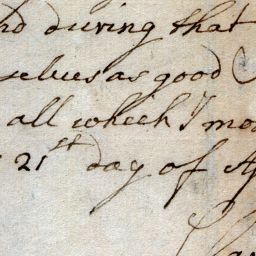 nd during that
selves as good
all which I mo
21st day of Ap